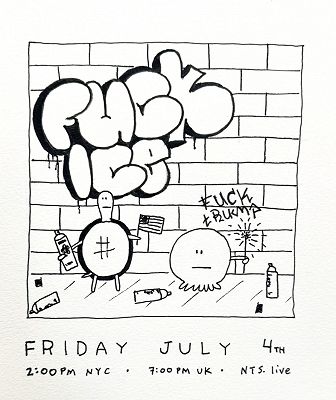 FUCK
ICE
FUCK
TRUMP
FRIDAY JULY 4TH
2:00PM NYC · 7:00PM UK · NTS. live